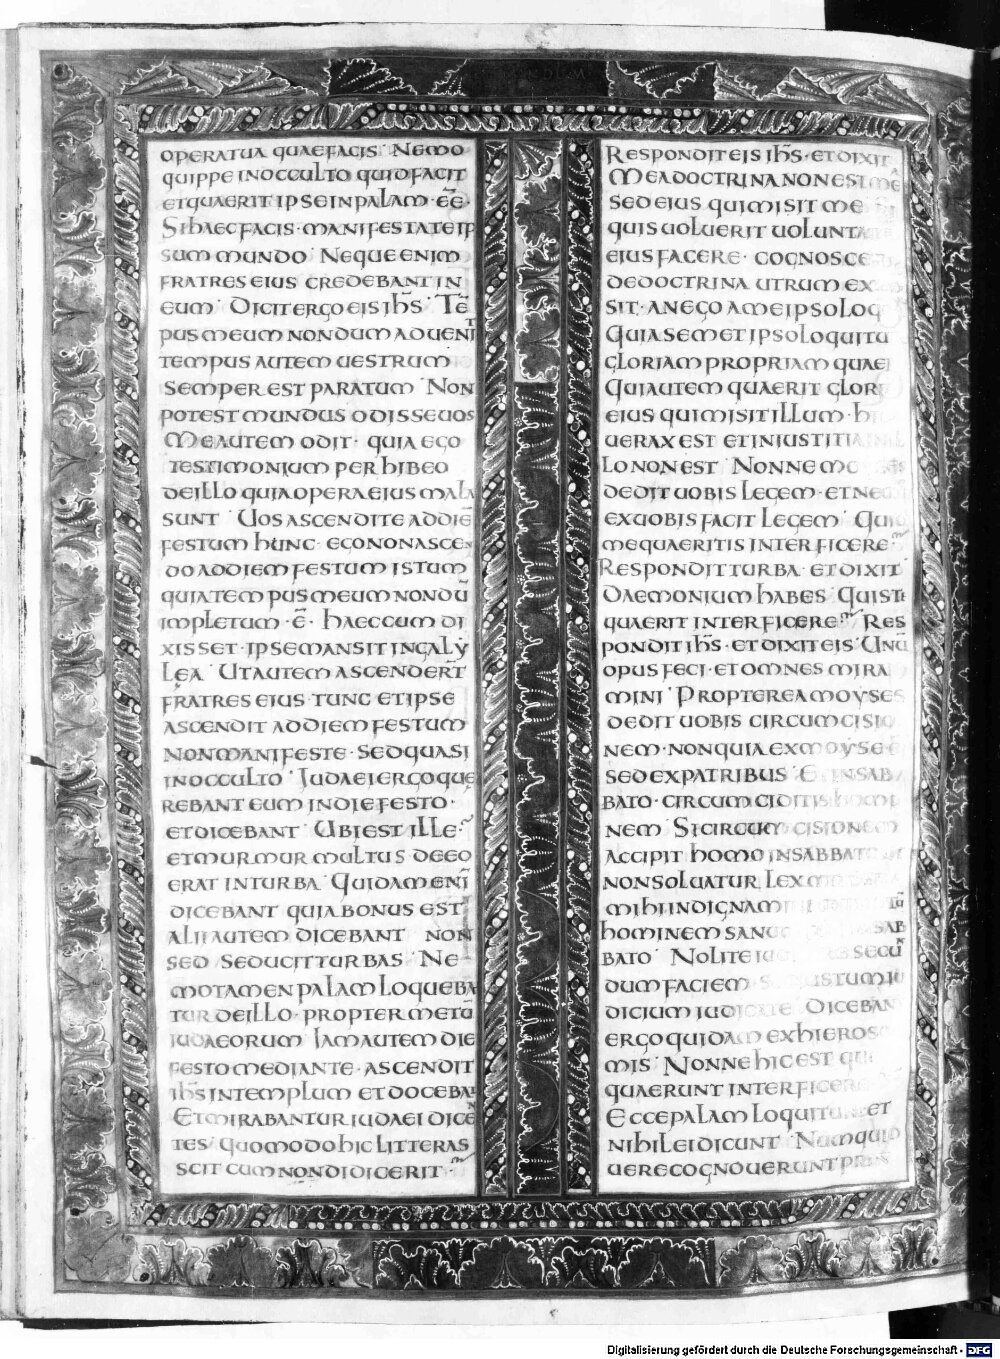 OPERA TUA QUAE FACIS · NEMO
QUIPPE IN OCCULTO QUID FACIT
ET QUAERIT IPSE IN PALAM · EE̅ ·
SI HAEC FACIS · MANIFESTA TE IP
SUM MUNDO · NEQUE ENIM
FRATRES EIUS CREDEBANT IN
EUM · DICIT ERGO EIS IH̅S · TE̅
PUS MEUM NONDUM ADUENIT
TEMPUS AUTEM UESTRUM
SEMPER EST PARATUM · NON
POTEST MUNDUS ODISSE UOS
ME AUTEM ODIT · QUIA EGO
TESTIMONIUM PERHIBEO
DE ILLO QUIA OPERA EIUS MALA
SUNT · UOS ASCENDITE AD DIE̅
FESTUM HUNC · EGO NON ASCEN
DO AD DIEM FESTUM ISTUM
QUIA TEMPUS MEUM NONDU̅
IMPLETUM · E̅ · HAEC CUM DI
XISSET · IPSE MANSIT IN GALY
LEA · UT AUTEM ASCENDERT
FRATRES EIUS · TUNC ET IPSE
ASCENDIT AD DIEM FESTUM
NON MANIFESTE · SED QUASI
IN OCCULTO · IUDAEI ERGO QUE
REBANT EUM IN DIE FESTO ·
ET DICEBANT · UBI EST ILLE ·
ET MURMUR MULTUS DE EO
ERAT IN TURBA · QUIDAM ENI̅
DICEBANT QUIA BONUS EST ·
ALII AUTEM DICEBANT NON
SED SEDUCIT TURBAS · NE
MO TAMEN PALAM LOQUEBA
TUR DE ILLO · PROPTER METU̅
IUDAEORUM · IAM AUTEM DIE
FESTO MEDIANTE · ASCENDIT
IH̅S IN TEMPLUM ET DOCEBAT
ET MIRABANTUR IUDAEI DICEN
TES · QUOMODO HIC LITTERAS
SCIT CUM NON DIDICERIT ·
RESPONDIT EIS IH̅S · ET DIXIT
MEA DOCTRINA NON EST MEA
SED EIUS QUI MISIT ME
QUIS UOLUERIT UOLUNTATE
EIUS FACERE · COGNOSCE
DE DOCTRINA UTRUM EX
SIT · AN EGO A ME IPSO LOQ
QUI A SEMET IPSO LOQUITU
GLORIAM PROPRIAM QUAE
QUI AUTEM QUAERIT GLORI
EIUS QUI MISIT ILLUM · HI
UERAX EST ET INIUSTITIA IN IL
LO NON EST · NONNE MO
DEDIT UOBIS LEGEM · ET NE
EX UOBIS FACIT LEGEM · QUI
ME QUAERITIS INTERFICERE ·
RESPONDIT TURBA · ET DIXIT
DAEMONIUM HABES · QUIS TE
QUAERIT INTERFICERE · RES
PONDIT IH̅S · ET DIXIT EIS · UNU̅
OPUS FECI · ET OMNES MIRA
MINI · PROPTEREA MOYSES
DEDIT UOBIS CIRCUMCISIO
NEM · NON QUIA EX MOYSE E
SED EX PATRIBUS · ET IN SAB
BATO · CIRCUMCIDITIS HOMI
NEM · SI CIRCUMCISIONEM
ACCIPIT HOMO IN SABBATO
NON SOLUATUR LEX
MIHI INDIGNAMI
HOMINEM SANU SAB
BATO · NOLITE IU SECU̅
DUM FACIEM · SED IUSTUM IU
DICIUM IUDICATE · DICEBAN
ERGO QUIDAM EX HIEROSO
MIS · NONNE HIC EST QU
QUAERUNT INTERFICERE
ECCE PALAM LOQUITUR ET
NIHIL EI DICUNT · NUMQUID
UERE COGNOUERUNT PRI
Digitalisierung gefördert durch die Deutsche Forschungsgemeinschaft - DFG